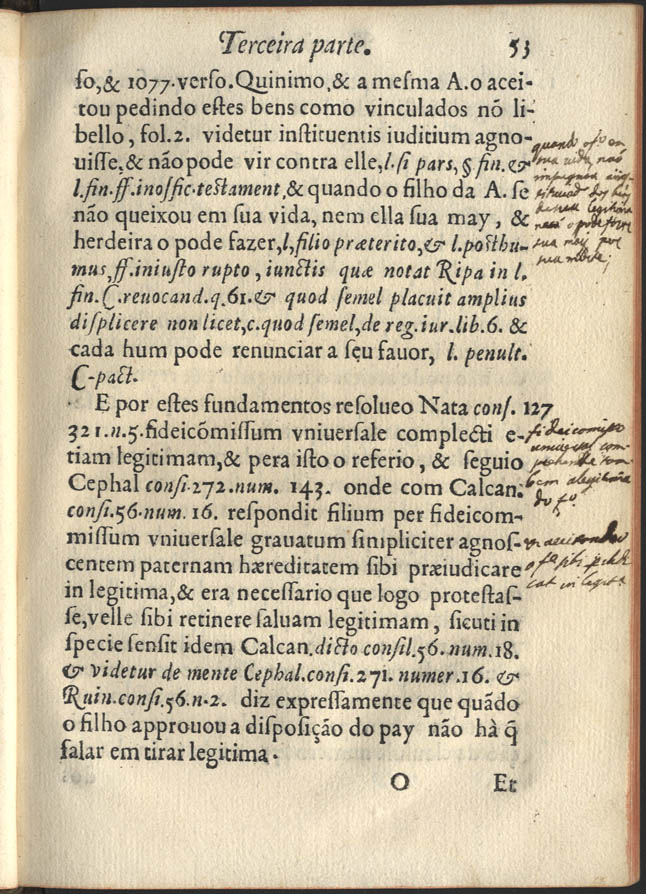 Terceira parte. 53
ſo,& 1077.verſo.Quinimo,& a meſma A.o acei-
tou pedindo eſtes bens como vinculados nõ li-
bello, fol.2. videtur inſtituentis iuditium agno-
uiſſe,& não pode vir contra elle,l.ſi pars, § fin.&
l.fin.ff.inoffic.teſtament,& quando o filho da A. ſe
não queixou em ſua vida, nem ella ſua may, &
herdeira o pode fazer,l,filio præterito,& l.poſthu-
mus,ff.iniuſto rupto, iunctis quæ notat Ripa in l.
fin.C.reuocand.q.61.& quod ſemel placuit amplius
diſplicere non licet,c.quod ſemel,de reg.iur.lib.6. &
cada hum pode renunciar a ſeu fauor, l. penult.
C.pact.
E por eſtes fundamentos reſolueo Nata conſ. 127
321.n.5.fideicõmiſſum vniuerſale complecti e-
tiam legitimam,& pera iſto o referio, & ſeguio
Cephal conſi.272.num. 143. onde com Calcan.
conſi.56.num. 16. reſpondit filium per fideicom-
miſſum vniuerſale grauatum ſimpliciter agnoſ-
centem paternam hæreditatem ſibi præiudicare
in legitima,& era neceſſario que logo proteſtaſ-
ſe,velle ſibi retinere ſaluam legitimam, ſicuti in
ſpecie ſenſit idem Calcan.dicto conſil.56.num.18.
& videtur de mente Cephal.conſi.271. numer.16. &
Ruin.conſi.56.n.2. diz expreſſamente que quãdo
o filho approuou a diſpoſição do pay não hà q̃
falar em tirar legitima.
O Et
quando o fº
ſua vida não
ſua may
fideicomiſſo
do fº